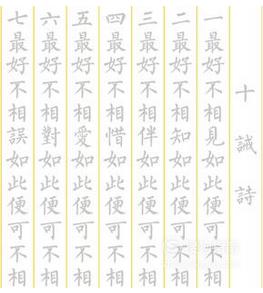 十誡詩
一最好不相見如此便可不相
二最好不相知如此便可不相
三最好不相伴如此便可不相
四最好不相惜如此便可不相
五最好不相愛如此便可不相
六最好不相對如此便可不相
七最好不相誤如此便可不相